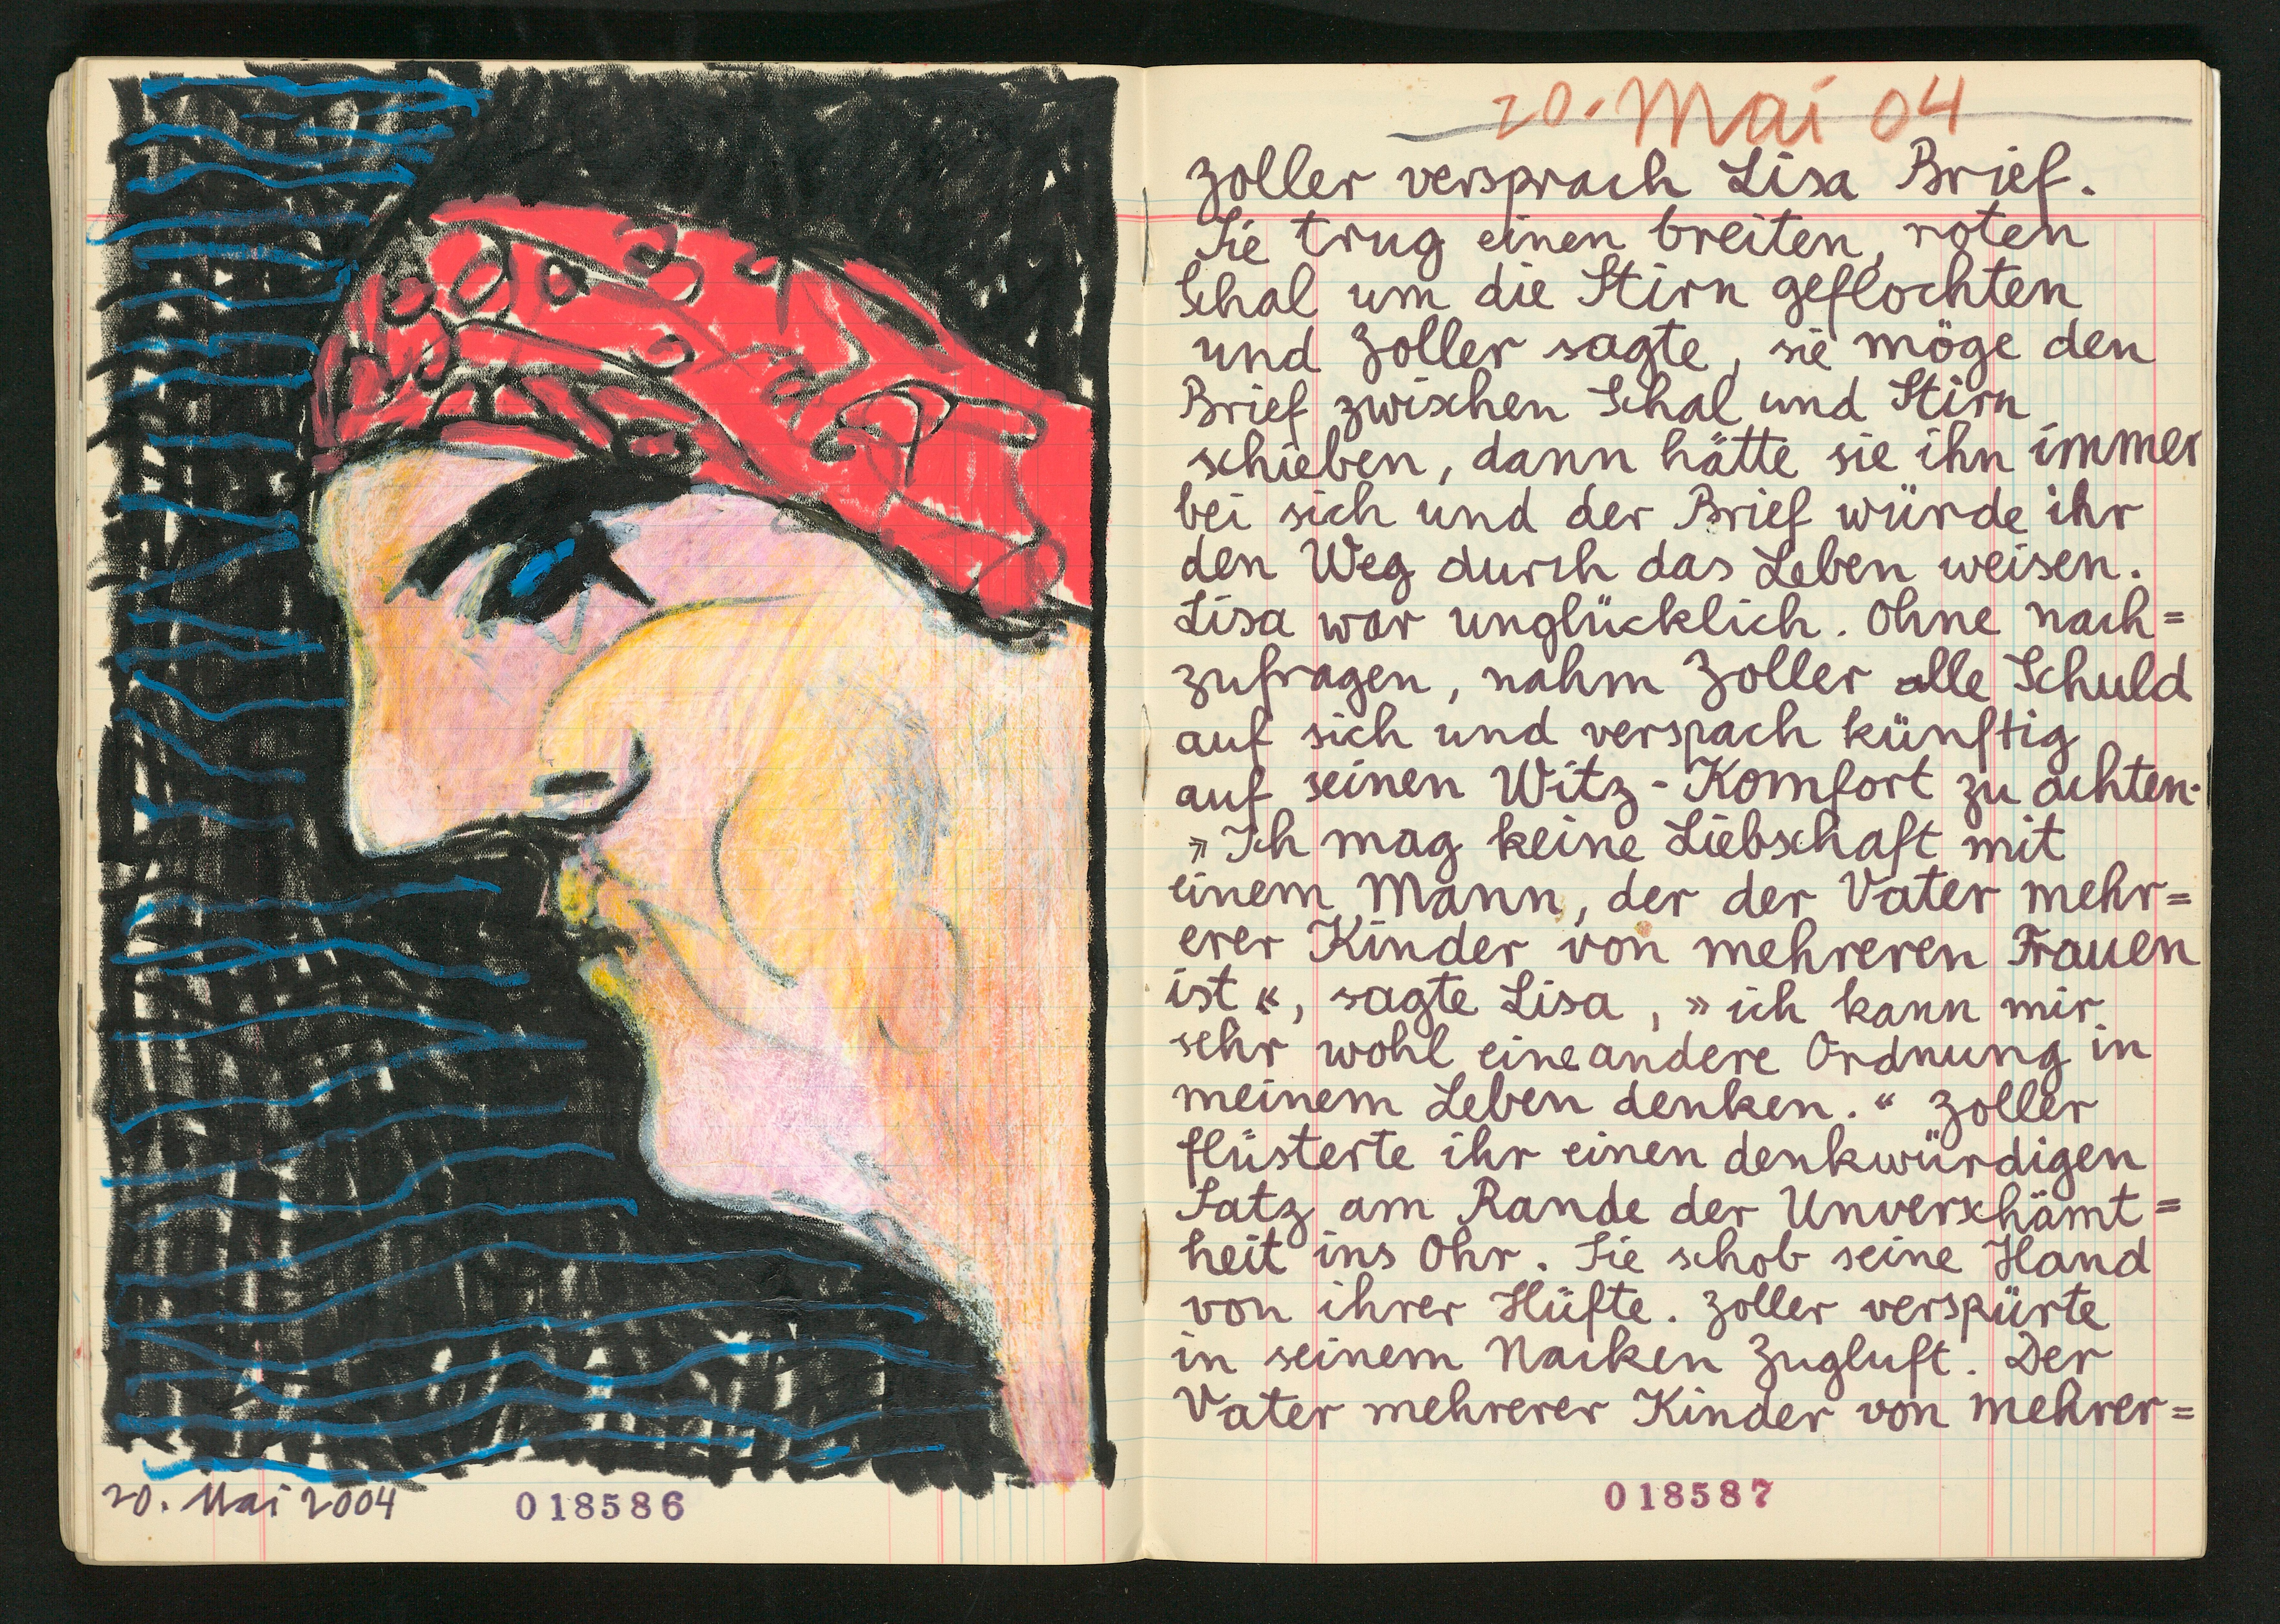 20. Mai 2004
018586
20. Mai 04
Zoller versprach Lisa Brief.
Sie trug einen breiten, roten
Schal um die Stirn geflochten
und Zoller sagte, sie möge den
Brief zwischen Schal und Stirn
schieben, dann hätte sie ihn immer
bei sich und der Brief würde ihr
den Weg durch das Leben weisen.
Lisa war unglücklich. Ohne nach=
zufragen, nahm Zoller alle Schuld
auf sich und verspach künftig
auf seinen Witz-Komfort zu achten.
»Ich mag keine Liebschaft mit
einem Mann, der der Vater mehr=
erer Kinder von mehreren Frauen
ist«, sagte Lisa, »ich kann mir
sehr wohl eine andere Ordnung in
meinem Leben denken.« Zoller
flüsterte ihr einen denkwürdigen
Satz am Rande der Unverschämt=
heit ins Ohr. Sie schob seine Hand
von ihrer Hüfte. Zoller verspürte
in seinem Nacken Zugluft. Der
Vater mehrerer Kinder von mehrer=
018587